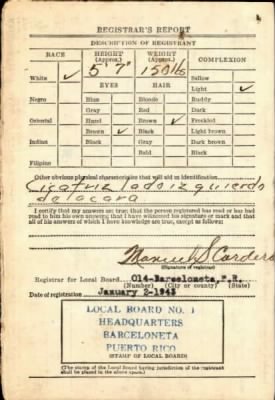 REGISTRAR'S REPORT
DESCRIPTION OF REGISTRANT
RACE HEIGHT (Approx.) WEIGHT (Approx.) COMPLEXION
White ✓ 5' 7" 150 lb Sallow
EYES HAIR Light ✓
Negro Blue Blonde Ruddy
Gray Red Dark
Oriental Hazel Brown ✓ Freckled
Brown ✓ Black Light brown
Indian Black Gray Dark brown
Bald Black
Filipino
Other obvious physical characteristics that will aid in identification
Cicatriz lado izquierdo
de la cara
I certify that my answers are true; that the person registered has read or has had
read to him his own answers; that I have witnessed his signature or mark and that
all of his answers of which I have knowledge are true, except as follows:
Manuel S Cordero
(Signature of registrar)
Registrar for Local Board 014-Barceloneta, P.R.
(Number) (City or county) (State)
Date of registration January 2-1943
LOCAL BOARD NO. 1
HEADQUARTERS
BARCELONETA
PUERTO RICO
(STAMP OF LOCAL BOARD)
(The stamp of the Local Board having jurisdiction of the registrant
shall be placed in the above space.)